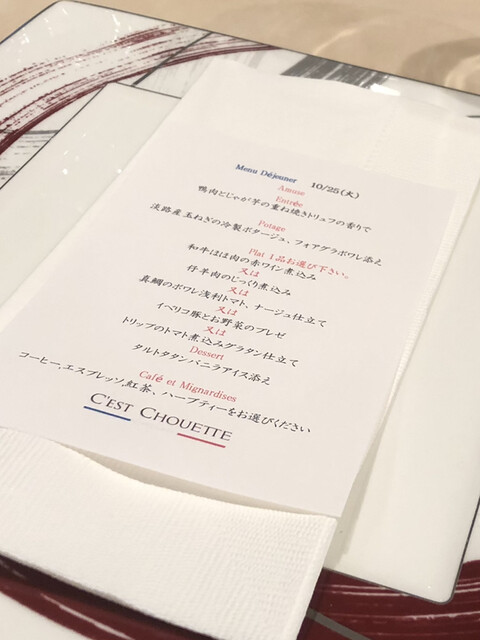 Menu Déjeuner 10/25(火)
Amuse
Entrée
鴨肉とじゃが芋の重ね焼きトリュフの香りで
Potage
淡路産玉ねぎの冷製ポタージュ、フォアグラポワレ添え
Plat 1品お選び下さい。
和牛ほほ肉の赤ワイン煮込み
又は
仔羊肉のじっくり煮込み
又は
真鯛のポワレ浅利トマト、ナージュ仕立て
又は
イベリコ豚とお野菜のブレゼ
又は
トリップのトマト煮込みグラタン仕立て
Dessert
タルトタタンバニラアイス添え
Café et Mignardises
コーヒー,エスプレッソ,紅茶、ハーブティーをお選びください
C'EST CHOUETTE